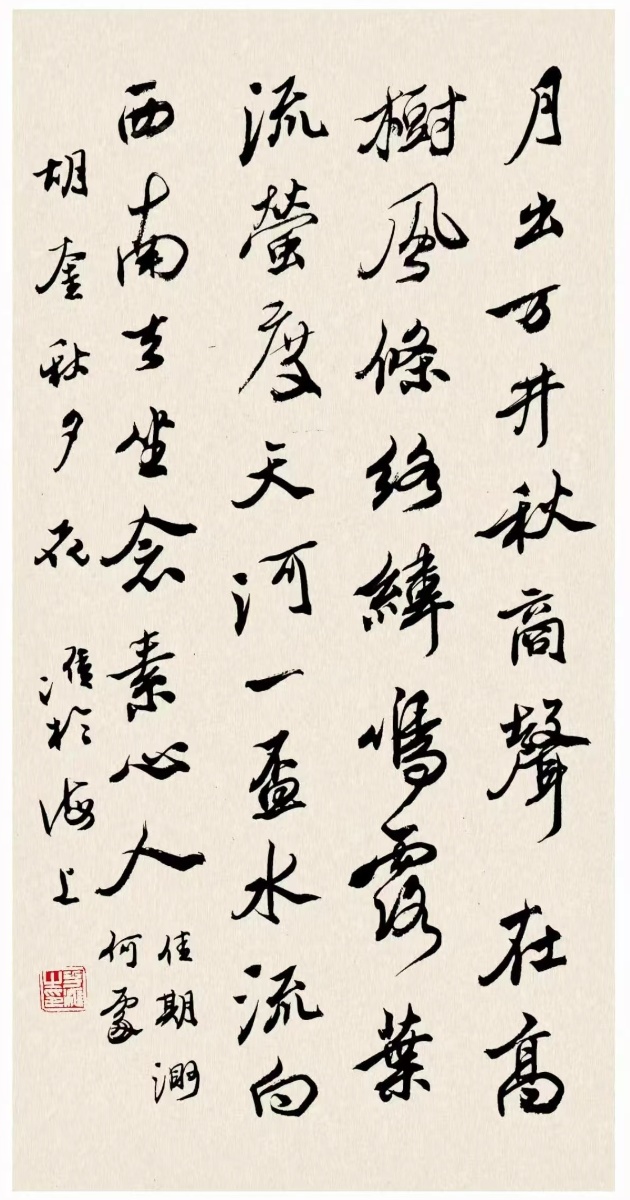 月出万井秋商聲在高
樹風條絡緯鳴露葉
流螢度天河一盃水流向
西南去坐念素心人
佳期渺
何處
胡奎秋夕於海上